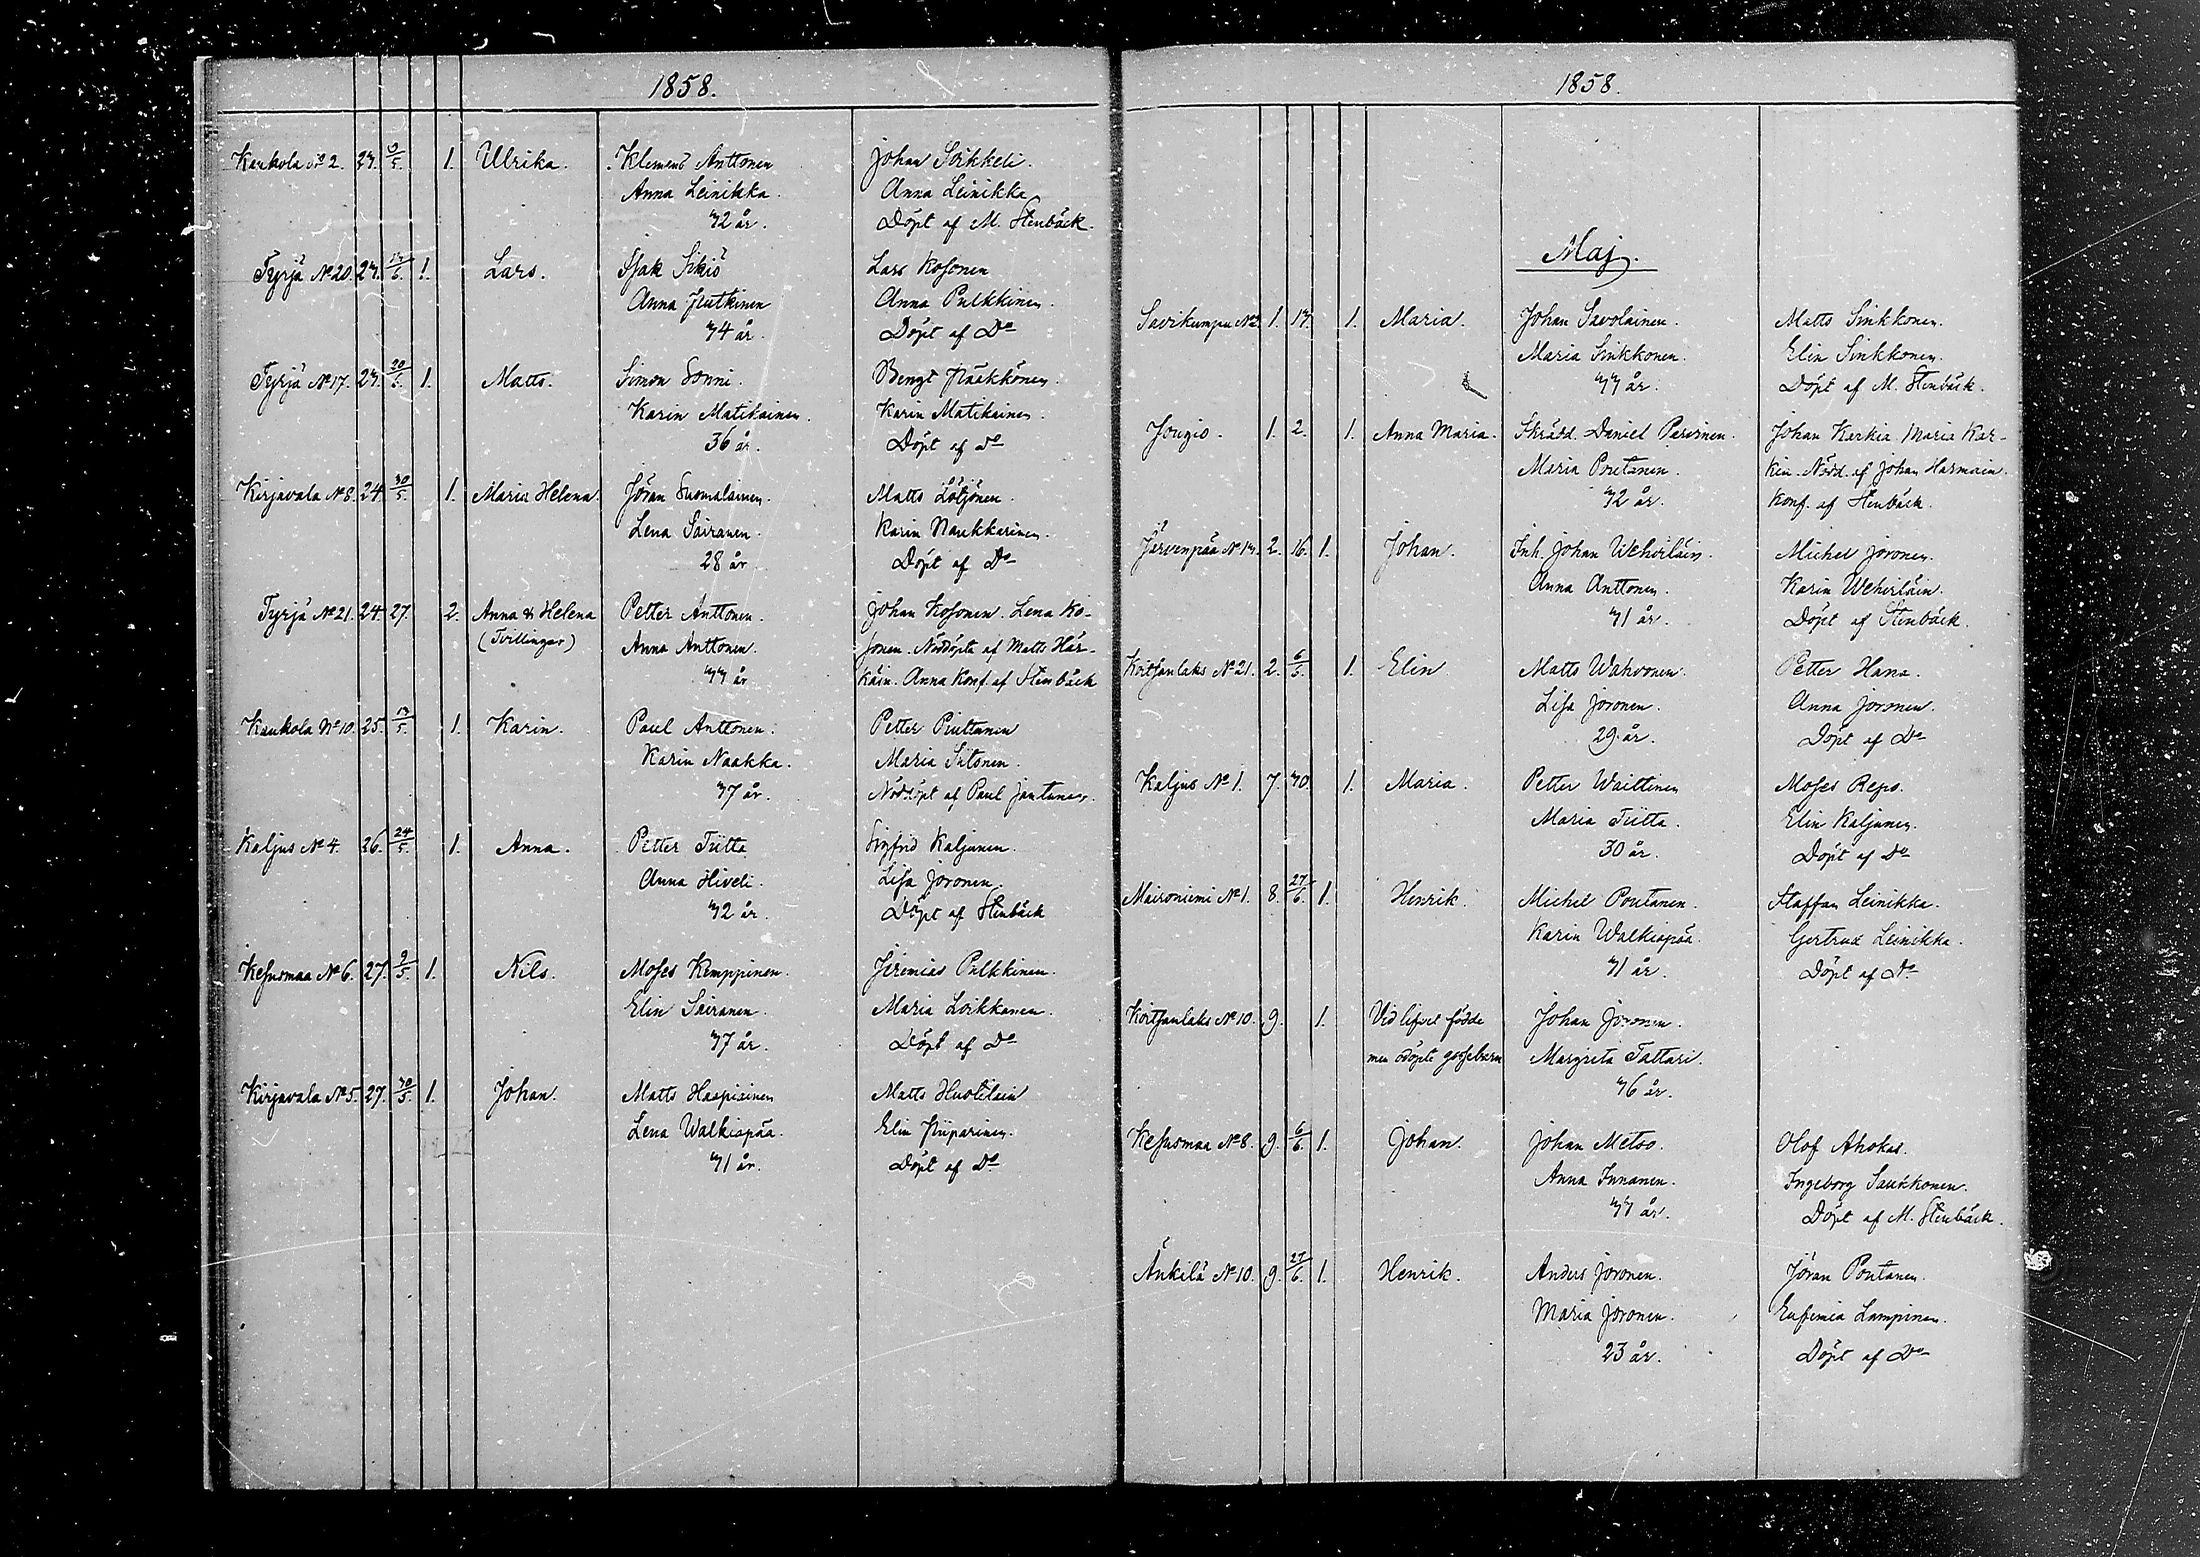 1858.
Kaukola No 2. 23. 9/5. 1. Ulrika. Klemens Anttonen Johan Soikkeli.
Anna Leinikka. Anna Leinikka
32 år. Döpt af M. Stenbäck.
Tyrjä No 20. 23. 13/6. 1. Lars. Isak Sikiö Lars Kosonen
Anna Putkinen Anna Pulkkinen.
34 år. Döpt af Do
Tyrjä No 17. 23. 20/6. 1. Matts. Simon Sonni. Bengt Pääkkönen.
Karin Matikainen. Karin Matikainen.
36 år. Döpt af do
Kirjavala No 8. 24. 30/5. 1. Maria Helena. Jöran Suomalainen. Matts Lötjönen.
Lena Sairanen. Karin Naukkarinen.
28 år Döpt af Do
Tyrjä No 21. 24. 27. 2. Anna & Helena Petter Anttonen. Johan Kosonen. Lena Ko-
(Tvillingar) Anna Anttonen. sonen. Nöddöpta af Matts Här-
33 år käin. Anna Konf. af Stenbäck
Kaukola No 10. 25. 13/5. 1. Karin. Paul Anttonen. Petter
Karin Naakka. Maria
37 år. Nöddöpt af Paul Jantunen.
Kaljus No 4. 26. 24/5. 1. Anna. Petter Tiitta Sigfrid Kaljunen.
Anna Hiveli. Lisa Joronen
32 år. Döpt af Stenbäck
Kesusmaa No 6. 27. 9/5. 1. Nils. Moses Kemppinen. Jeremias Pulkkinen.
Elin Sairanen. Maria Loikkanen.
37 år. Döpt af Do
Kirjavala No 5. 27. 30/5. 1. Johan. Matts Haapiainen Matts Huolilain
Lena Walkiapää. Elin Piiparinen.
31 år. Döpt af Do
1858.
Maj.
Savikumpu No 2. 1. 13. 1. Maria. Johan Savolainen. Matts Sinkkonen.
Maria Sinkkonen. Elin Sinkkonen.
33 år. Döpt af M. Stenbäck.
Jougio. 1. 2. 1. Anna Maria. Skrädd. Daniel Parvinen. Johan Karkia. Maria Kar-
Maria Poutanen. kia. Nödd. af Johan Harmain.
32 år. Konf. af Stenbäck.
Järvenpää No 13. 2. 16. 1. Johan. Inh. Johan Wehviläin. Michel Joronen.
Anna Anttonen. Karin Wehviläin.
31 år. Döpt af Stenbäck.
Koitsanlaks No 21. 2. 6/5. 1. Elin Matts Wahvonen. Petter Hana.
Lisa Joronen. Anna Joronen.
29 år. Döpt af Do
Kaljus No 1. 7. 30. 1. Maria. Petter Waittinen Moses Repo.
Maria Tiitta. Elin Kaljunen.
30 år. Döpt af Do
Maironiemi No 1. 8. 27/6. 1. Henrik Michel Poutanen. Staffan Leinikka.
Karin Walkiapää. Gertrud Leinikka.
31 år. Döpt af Do
Koitsanlaks No 10. 9. 1. Vid lifvet födde Johan Joronen.
men odöpte gossebarn Margreta Tattari.
36 år.
Kesusmaa No 8. 9. 6/6. 1. Johan. Johan Metso. Olof Ahokas.
Anna Innanen. Ingeborg Saukkonen.
33 år. Döpt af M. Stenbäck.
Änkilä No 10. 9. 27/6. 1. Henrik. Anders Joronen. Jöran Poutanen.
Maria Joronen. Eufemia Lampinen.
23 år. Döpt af Do